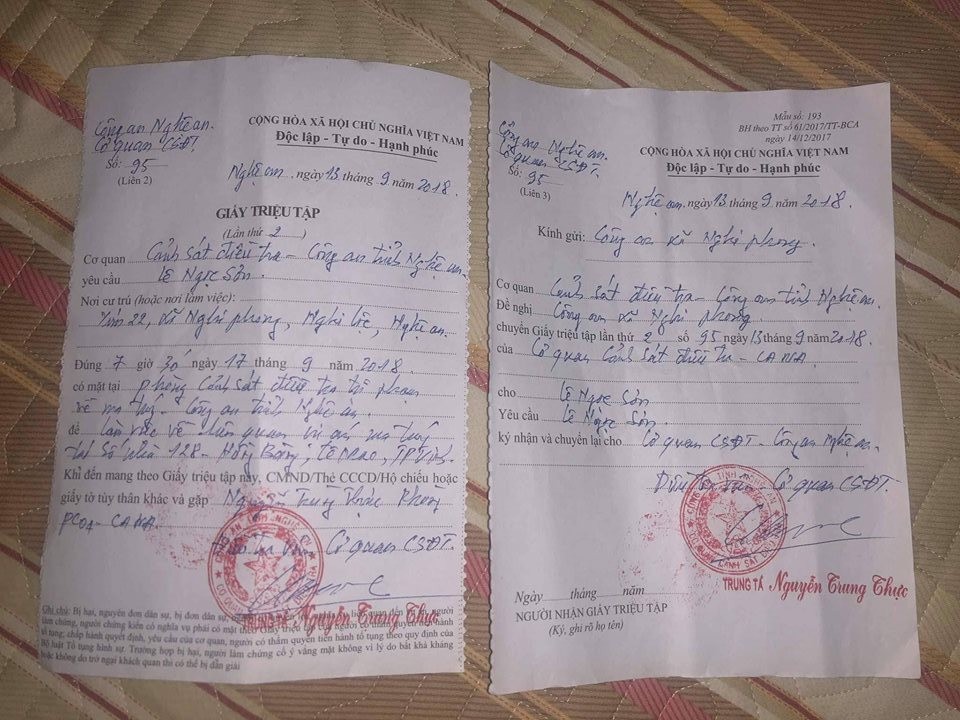 Công an Nghệ an.
Cơ quan CSĐT.
Số: 95
(Liên 2)
CỘNG HÒA XÃ HỘI CHỦ NGHĨA VIỆT NAM
Độc lập - Tự do - Hạnh phúc
Nghệ an, ngày 13 tháng 9 năm 2018.
GIẤY TRIỆU TẬP
(Lần thứ 2)
Cơ quan Cảnh sát điều tra - Công an tỉnh Nghệ an
yêu cầu Lê Ngọc Sơn.
Nơi cư trú (hoặc nơi làm việc):
Xóm 22, xã Nghi phong, Nghi lộc, Nghệ an.
Đúng 7 giờ 30 ngày 17 tháng 9 năm 2018.
có mặt tại phòng Cảnh sát điều tra tội phạm
về ma túy - Công an tỉnh Nghệ an.
để làm việc về liên quan vụ án ma túy
tại Số nhà 128 - Hồng Bàng, Lê Mao, TP Vinh.
Khi đến mang theo Giấy triệu tập này, CMND/Thẻ CCCD/Hộ chiếu hoặc
giấy tờ tùy thân khác và gặp Nguyễn Trung Thực Phòng
PC04 - CANA.
Điều tra viên Cơ quan CSĐT.
Nguyễn Trung Thực
Ghi chú: Bị hại, nguyên đơn dân sự, bị đơn dân sự,
làm chứng, người chứng kiến có nghĩa vụ phải có mặt theo Giấy triệu tập
tố tụng; chấp hành quyết định, yêu cầu của cơ quan, người có thẩm quyền tiến hành tố tụng theo quy định của
Bộ luật Tố tụng hình sự. Trường hợp bị hại, người làm chứng cố ý vắng mặt không vì lý do bất khả kháng
hoặc không do trở ngại khách quan thì có thể bị dẫn giải
Mẫu số: 193
BH theo TT số 61/2017/TT-BCA
ngày 14/12/2017
Công an Nghệ an.
Cơ quan CSĐT.
Số: 95
(Liên 3)
CỘNG HÒA XÃ HỘI CHỦ NGHĨA VIỆT NAM
Độc lập - Tự do - Hạnh phúc
Nghệ an, ngày 13 tháng 9 năm 2018.
Kính gửi: Công an xã Nghi phong.
Cơ quan Cảnh sát điều tra - Công an tỉnh Nghệ an.
Đề nghị Công an xã Nghi phong
chuyển Giấy triệu tập lần thứ 2 số 95 13 tháng 9 năm 2018.
của Cơ quan Cảnh sát điều tra - CANA
cho Lê Ngọc Sơn
Yêu cầu Lê Ngọc Sơn
ký nhận và chuyển lại cho Cơ quan CSĐT - Công an Nghệ an.
Điều tra viên Cơ quan CSĐT.
TRUNG TÁ Nguyễn Trung Thực
Ngày tháng năm
NGƯỜI NHẬN GIẤY TRIỆU TẬP
(Ký, ghi rõ họ tên)